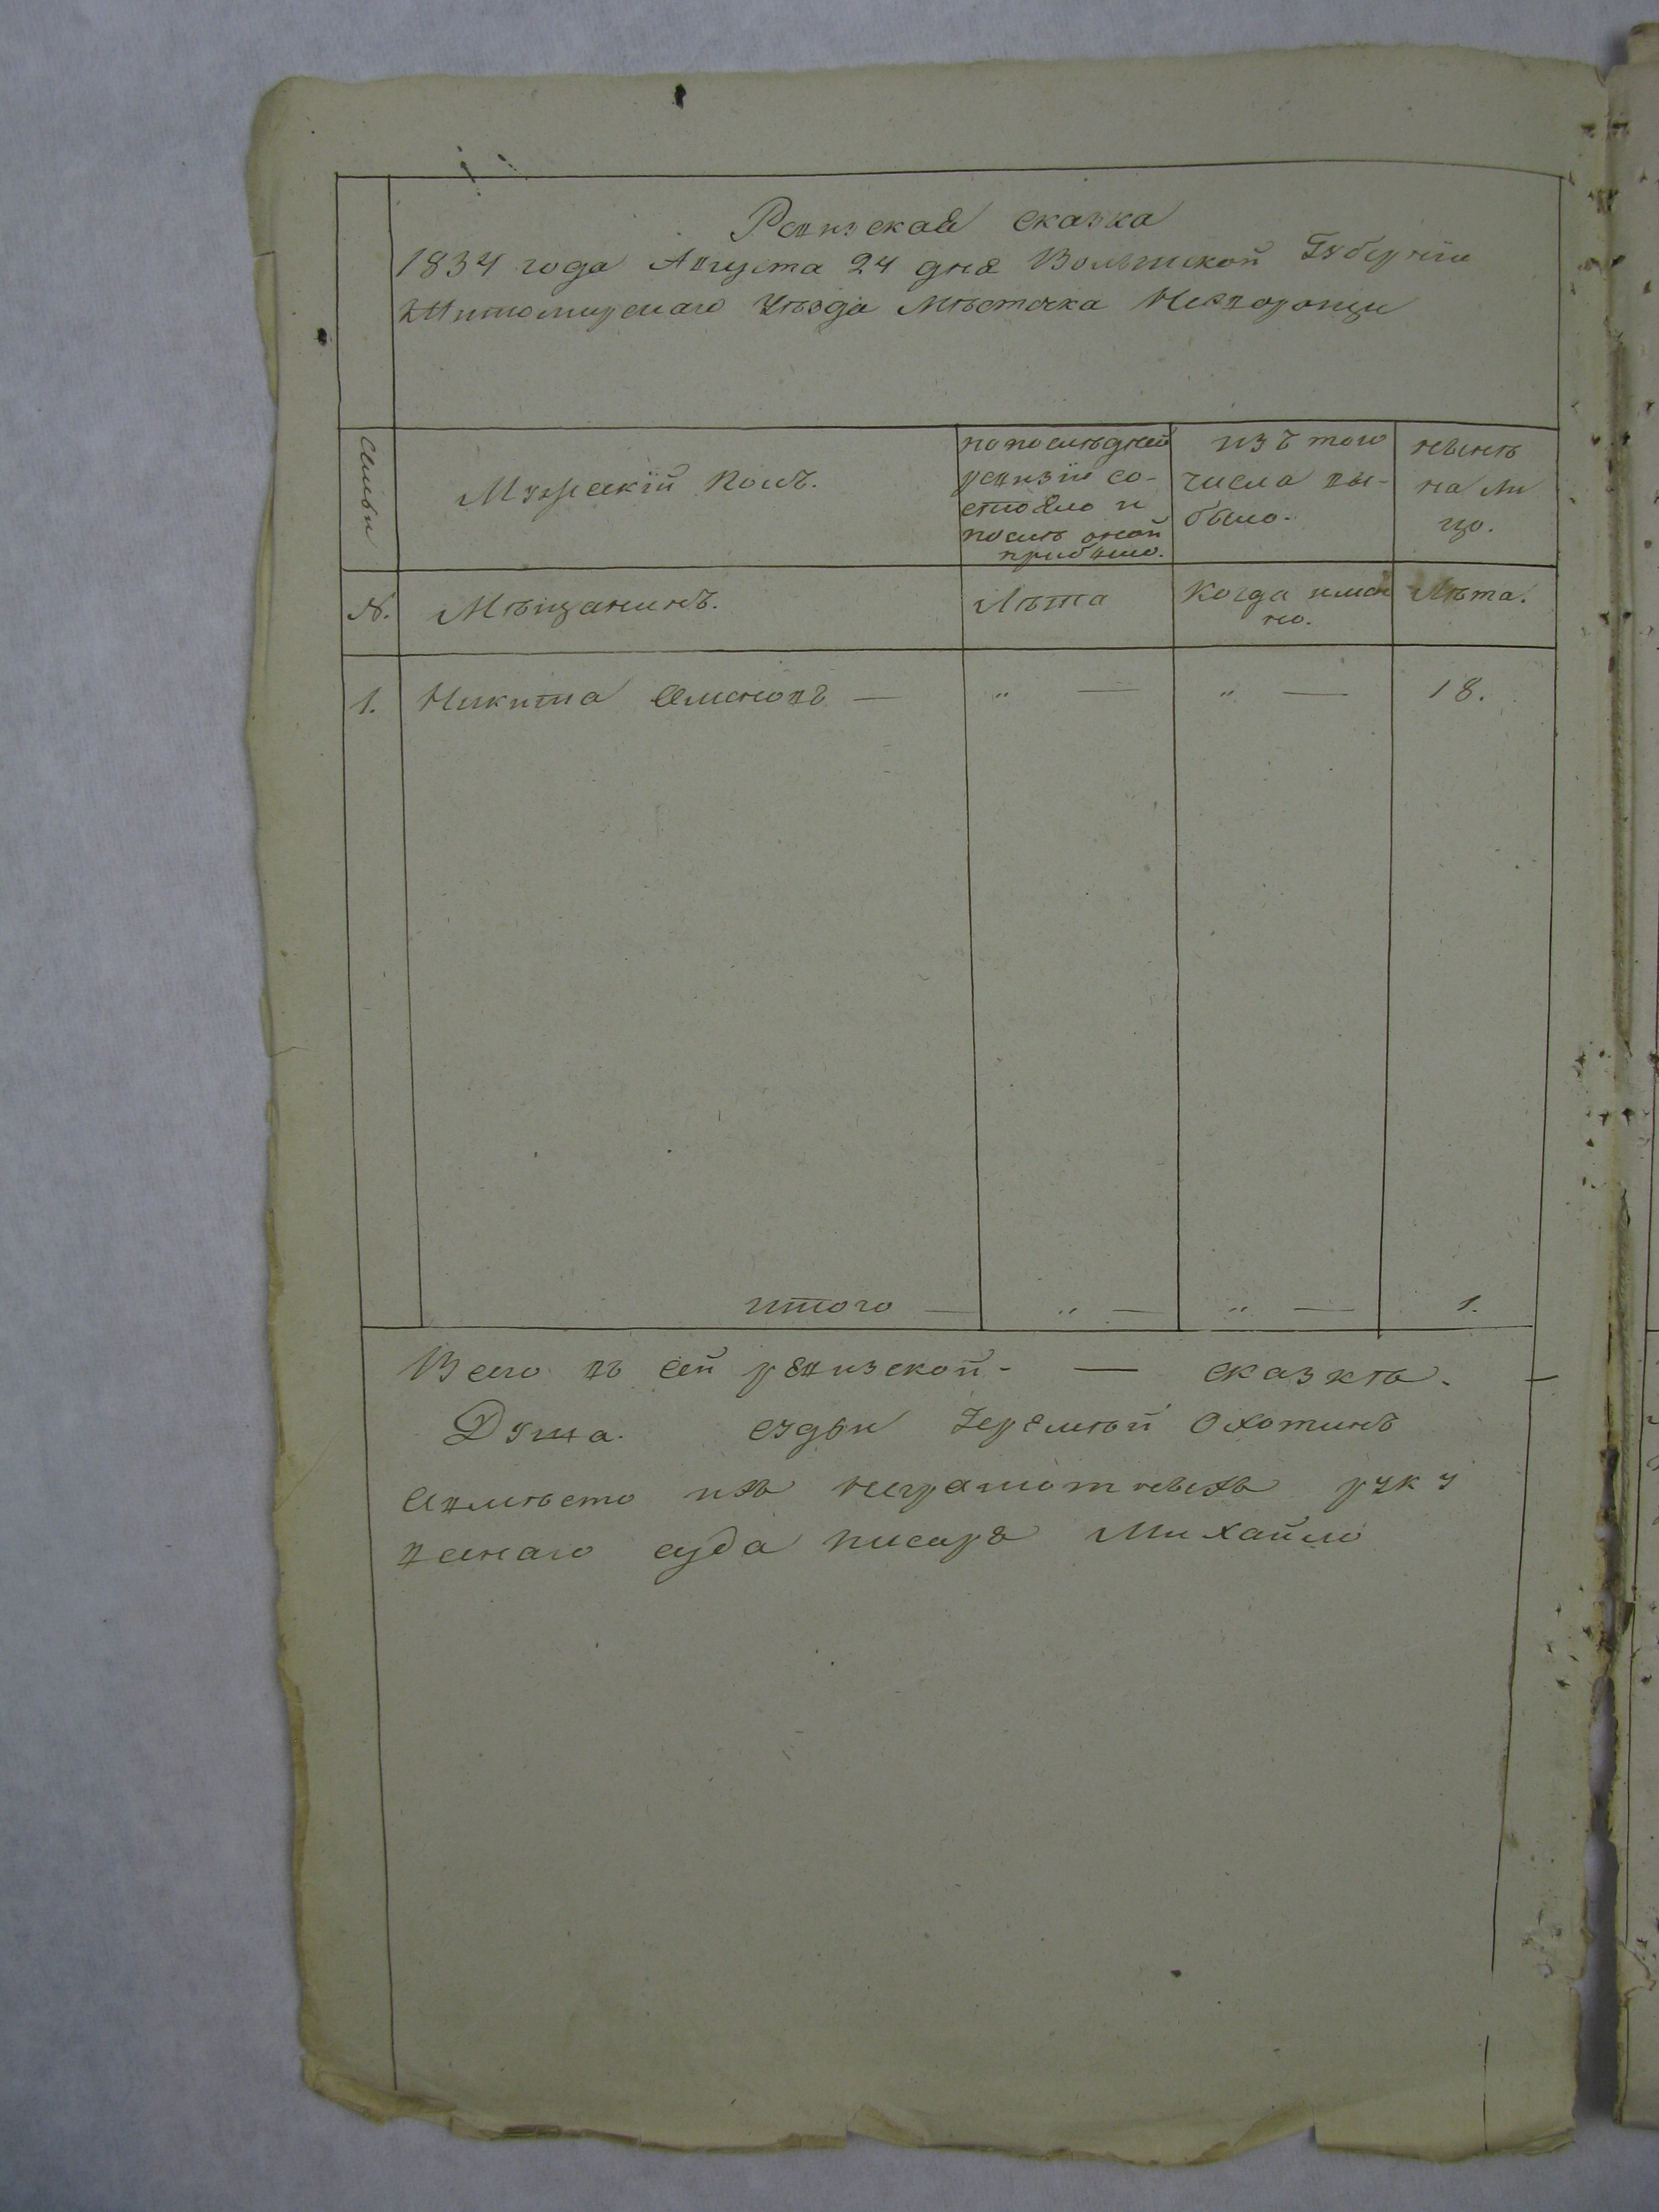 Ревизская сказка
1834 года Августа 24 дня Волынской Губерніи
Житомирскаго Уѣзда Мѣстечка Нехворощи
Семьи
Мужескій полъ.
по послѣдней
ревизіи со-
стояло и
послѣ оной
прибыло.
изъ того
числа вы-
было.
нынѣ
на ли
цо.
N.
Мѣщанинъ.
Лѣта
Когда имян
но.
Лѣта.
1. Никита Семеновъ — " — " — 18.
итого — " — " — 1.
Всего въ сей ревизской - — сказкѣ.
Душа. судьи Охотинъ
а вмѣсто ихъ неграмотныхъ руку
суда писарь Михайло